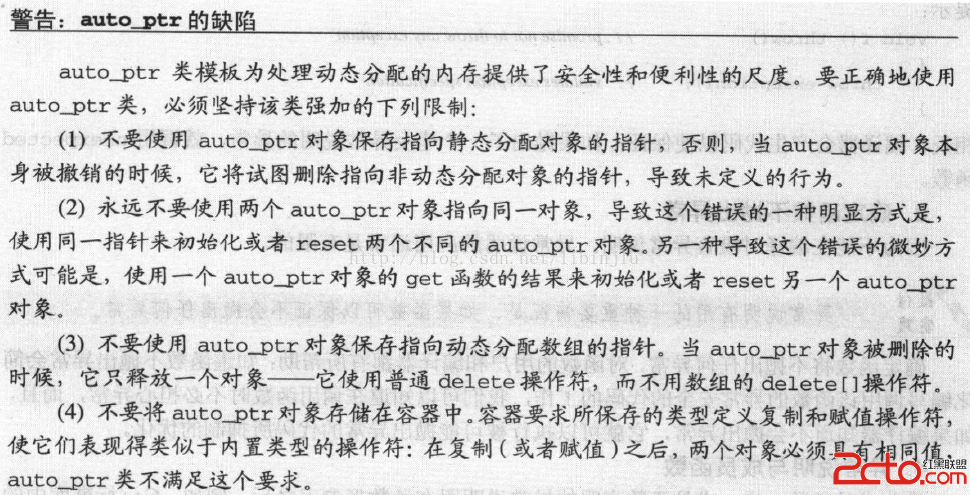 警告：auto_ptr 的缺陷
auto_ptr 类模板为处理动态分配的内存提供了安全性和便利性的尺度。要正确地使用
auto_ptr 类，必须坚持该类强加的下列限制：
(1) 不要使用 auto_ptr 对象保存指向静态分配对象的指针，否则，当 auto_ptr 对象本
身被撤销的时候，它将试图删除指向非动态分配对象的指针，导致未定义的行为。
(2) 永远不要使用两个 auto_ptr 对象指向同一对象，导致这个错误的一种明显方式是，
使用同一指针来初始化或者 reset 两个不同的 auto_ptr 对象。另一种导致这个错误的微妙方
http://blog.csdn.net/
式可能是，使用一个 auto_ptr 对象的 get 函数的结果来初始化或者 reset 另一个 auto_ptr
对象。
(3) 不要使用 auto_ptr 对象保存指向动态分配数组的指针。当 auto_ptr 对象被删除的
时候，它只释放一个对象——它使用普通 delete 操作符，而不用数组的 delete[] 操作符。
(4) 不要将 auto_ptr 对象存储在容器中。容器要求所保存的类型定义复制和赋值操作符，
使它们表现得类似于内置类型的操作符：在复制（或者赋值）之后，两个对象必须具有相同值，
auto_ptr 类不满足这个要求。
2cto.com
红黑联盟